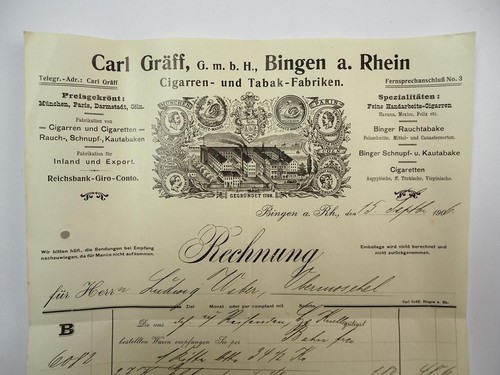 Carl Gräff, G. m. b. H., Bingen a. Rhein
Telegr.-Adr.: Carl Gräff
Cigarren- und Tabak-Fabriken.
Fernsprechanschluß No. 3
Preisgekrönt:
München, Paris, Darmstadt, Cöln.
Fabrikation von
Cigarren und Cigaretten
Rauch-, Schnupf-, Kautabaken
Fabrikation für
Inland und Export.
Reichsbank-Giro-Conto.
MÜNCHEN
PARIS
GEGRÜNDET
Spezialitäten:
Feine Handarbeits-Cigarren
Havana, Mexico, Felix etc.
Binger Rauchtabake
Feinschnitte, Mittel- und Canastersorten.
Binger Schnupf- u. Kautabake
Cigaretten
Aegyptische, Türkische, Virginische.
Bingen a. Rh., den 15. Septbr 1906
Wir bitten höfl., die Sendungen bei Empfang
nachzuwiegen, da für Manco nicht aufkommen.
Rechnung
Emballage wird nicht berechnet und
nicht zurückgenommen.
für Herrn Ludwig Obermoschel
Ziel Monat oder per comptant mit Sconto.
Carl Gräff, Bingen a. Rh.
B
Die uns gütigst
bestellten Waren empfingen Sie per Bahn frei
6082